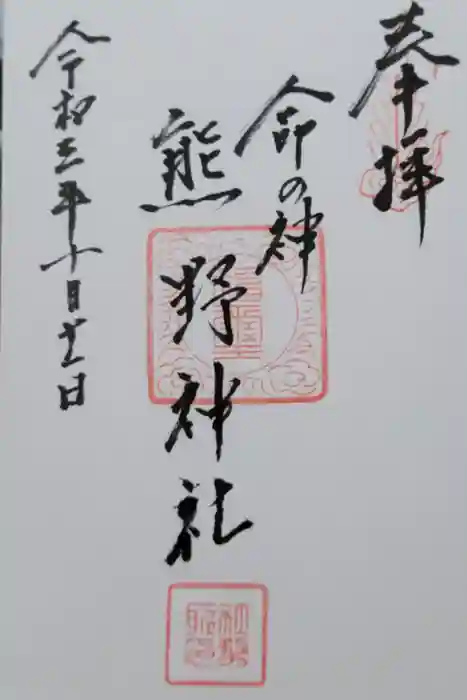 奉拝
命の神
熊野神社
令和三年十月十二日